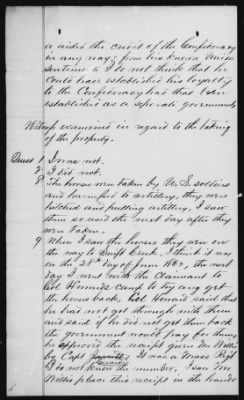 or aided the credit of the Confederacy
in any way; from his known Union
sentiments I do not think that he
could have established his loyalty
to the Confederacy had that been
established as a seperate government
Witness examined in regard to the taking
of the property.
Ques 1 I was not.
2 I did not.
8 The horses were taken by U.S. soldiers
and turned to artillery, they were
hitched and pulling artillery, I saw
them so used the next day after they
were taken.
9 When I saw the horses they were on
the way to Swift Creek, I think it was
on the 28th day of June 1862, the next
day I went with the Claimant to
Col Howards camp to try any get
the horses back, Col Howard said that
he had not got through with them
and said if he did not get them back
the government would pay for them,
he approved the receipt given Mr Willis
by Capt It was a Mass Regt
I do not know the number. I saw Mr
Willis place this receipt in the hands